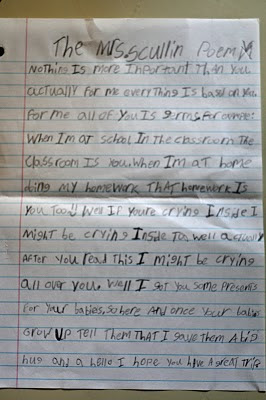 The Mrs.scullin Poem
Nothing Is more Important Than you
actually for me everything Is based on you.
For me all of you Is
When Im at school In the classroom The
classroom Is you. When Im at home
doing my homework THAT homework Is
you Too!! Well If you're crying Inside I
might be crying Inside Too well actually
After you read This I might be crying
all over you. Well I got you some presents
For your babies, so here And once your babies
Grow up Tell Them THAT I gave Them A big
hug and a hello I hope you have A great Trip